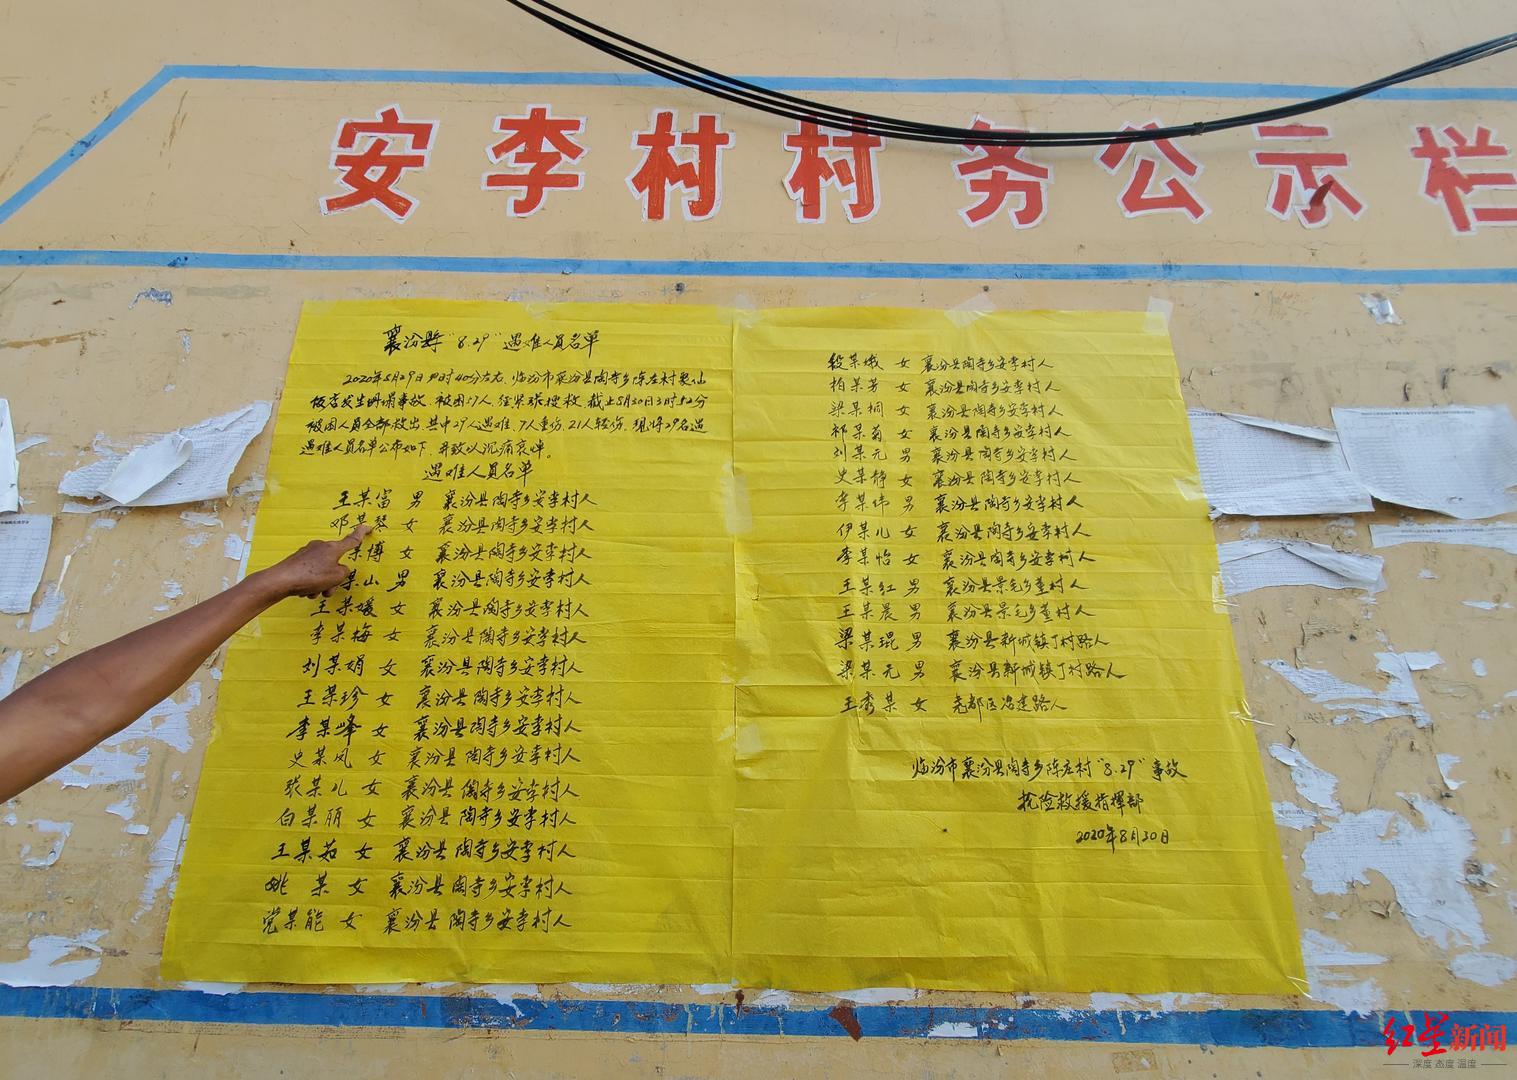 安李村村务公示栏
襄汾县"8.29"遇难人员名单
2020年8月29日9时40分左右，临汾市襄汾县陶寺乡陈庄村聚仙
饭店发生坍塌事故，被困57人，经紧张搜救，截止8月30日3时52分
被困人员全部救出，其中29人遇难，7人重伤，21人轻伤，现将29名遇
遇难人员名单公布如下，并致以沉痛哀悼。
遇难人员名单
王某富 男 襄汾县陶寺乡安李村人
邓某琴 女 襄汾县陶寺乡安李村人
某博 女 襄汾县陶寺乡安李村人
某山 男 襄汾县陶寺乡安李村人
王某媛 女 襄汾县陶寺乡安李村人
李某梅 女 襄汾县陶寺乡安李村人
刘某娟 女 襄汾县陶寺乡安李村人
王某珍 女 襄汾县陶寺乡安李村人
李某峰 女 襄汾县陶寺乡安李村人
史某凤 女 襄汾县陶寺乡安李村人
张某儿 女 襄汾县陶寺乡安李村人
白某丽 女 襄汾县陶寺乡安李村人
王某茹 女 襄汾县陶寺乡安李村人
姚 某 女 襄汾县陶寺乡安李村人
党某能 女 襄汾县陶寺乡安李村人
段某娥 女 襄汾县陶寺乡安李村人
柏某芳 女 襄汾县陶寺乡安李村人
梁某桐 女 襄汾县陶寺乡安李村人
祁某菊 女 襄汾县陶寺乡安李村人
刘某元 男 襄汾县陶寺乡安李村人
史某静 女 襄汾县陶寺乡安李村人
李某伟 男 襄汾县陶寺乡安李村人
伊某儿 女 襄汾县陶寺乡安李村人
李某怡 女 襄汾县陶寺乡安李村人
王某红 男 襄汾县景毛乡董村人
王某晨 男 襄汾县景毛乡董村人
梁某琨 男 襄汾县新城镇丁村路人
梁某元 男 襄汾县新城镇丁村路人
王秀某 女 尧都区冶建路人
临汾市襄汾县陶寺乡陈庄村"8.29"事故
抢险救援指挥部
2020年8月30日
红星新闻
深度 态度 温度